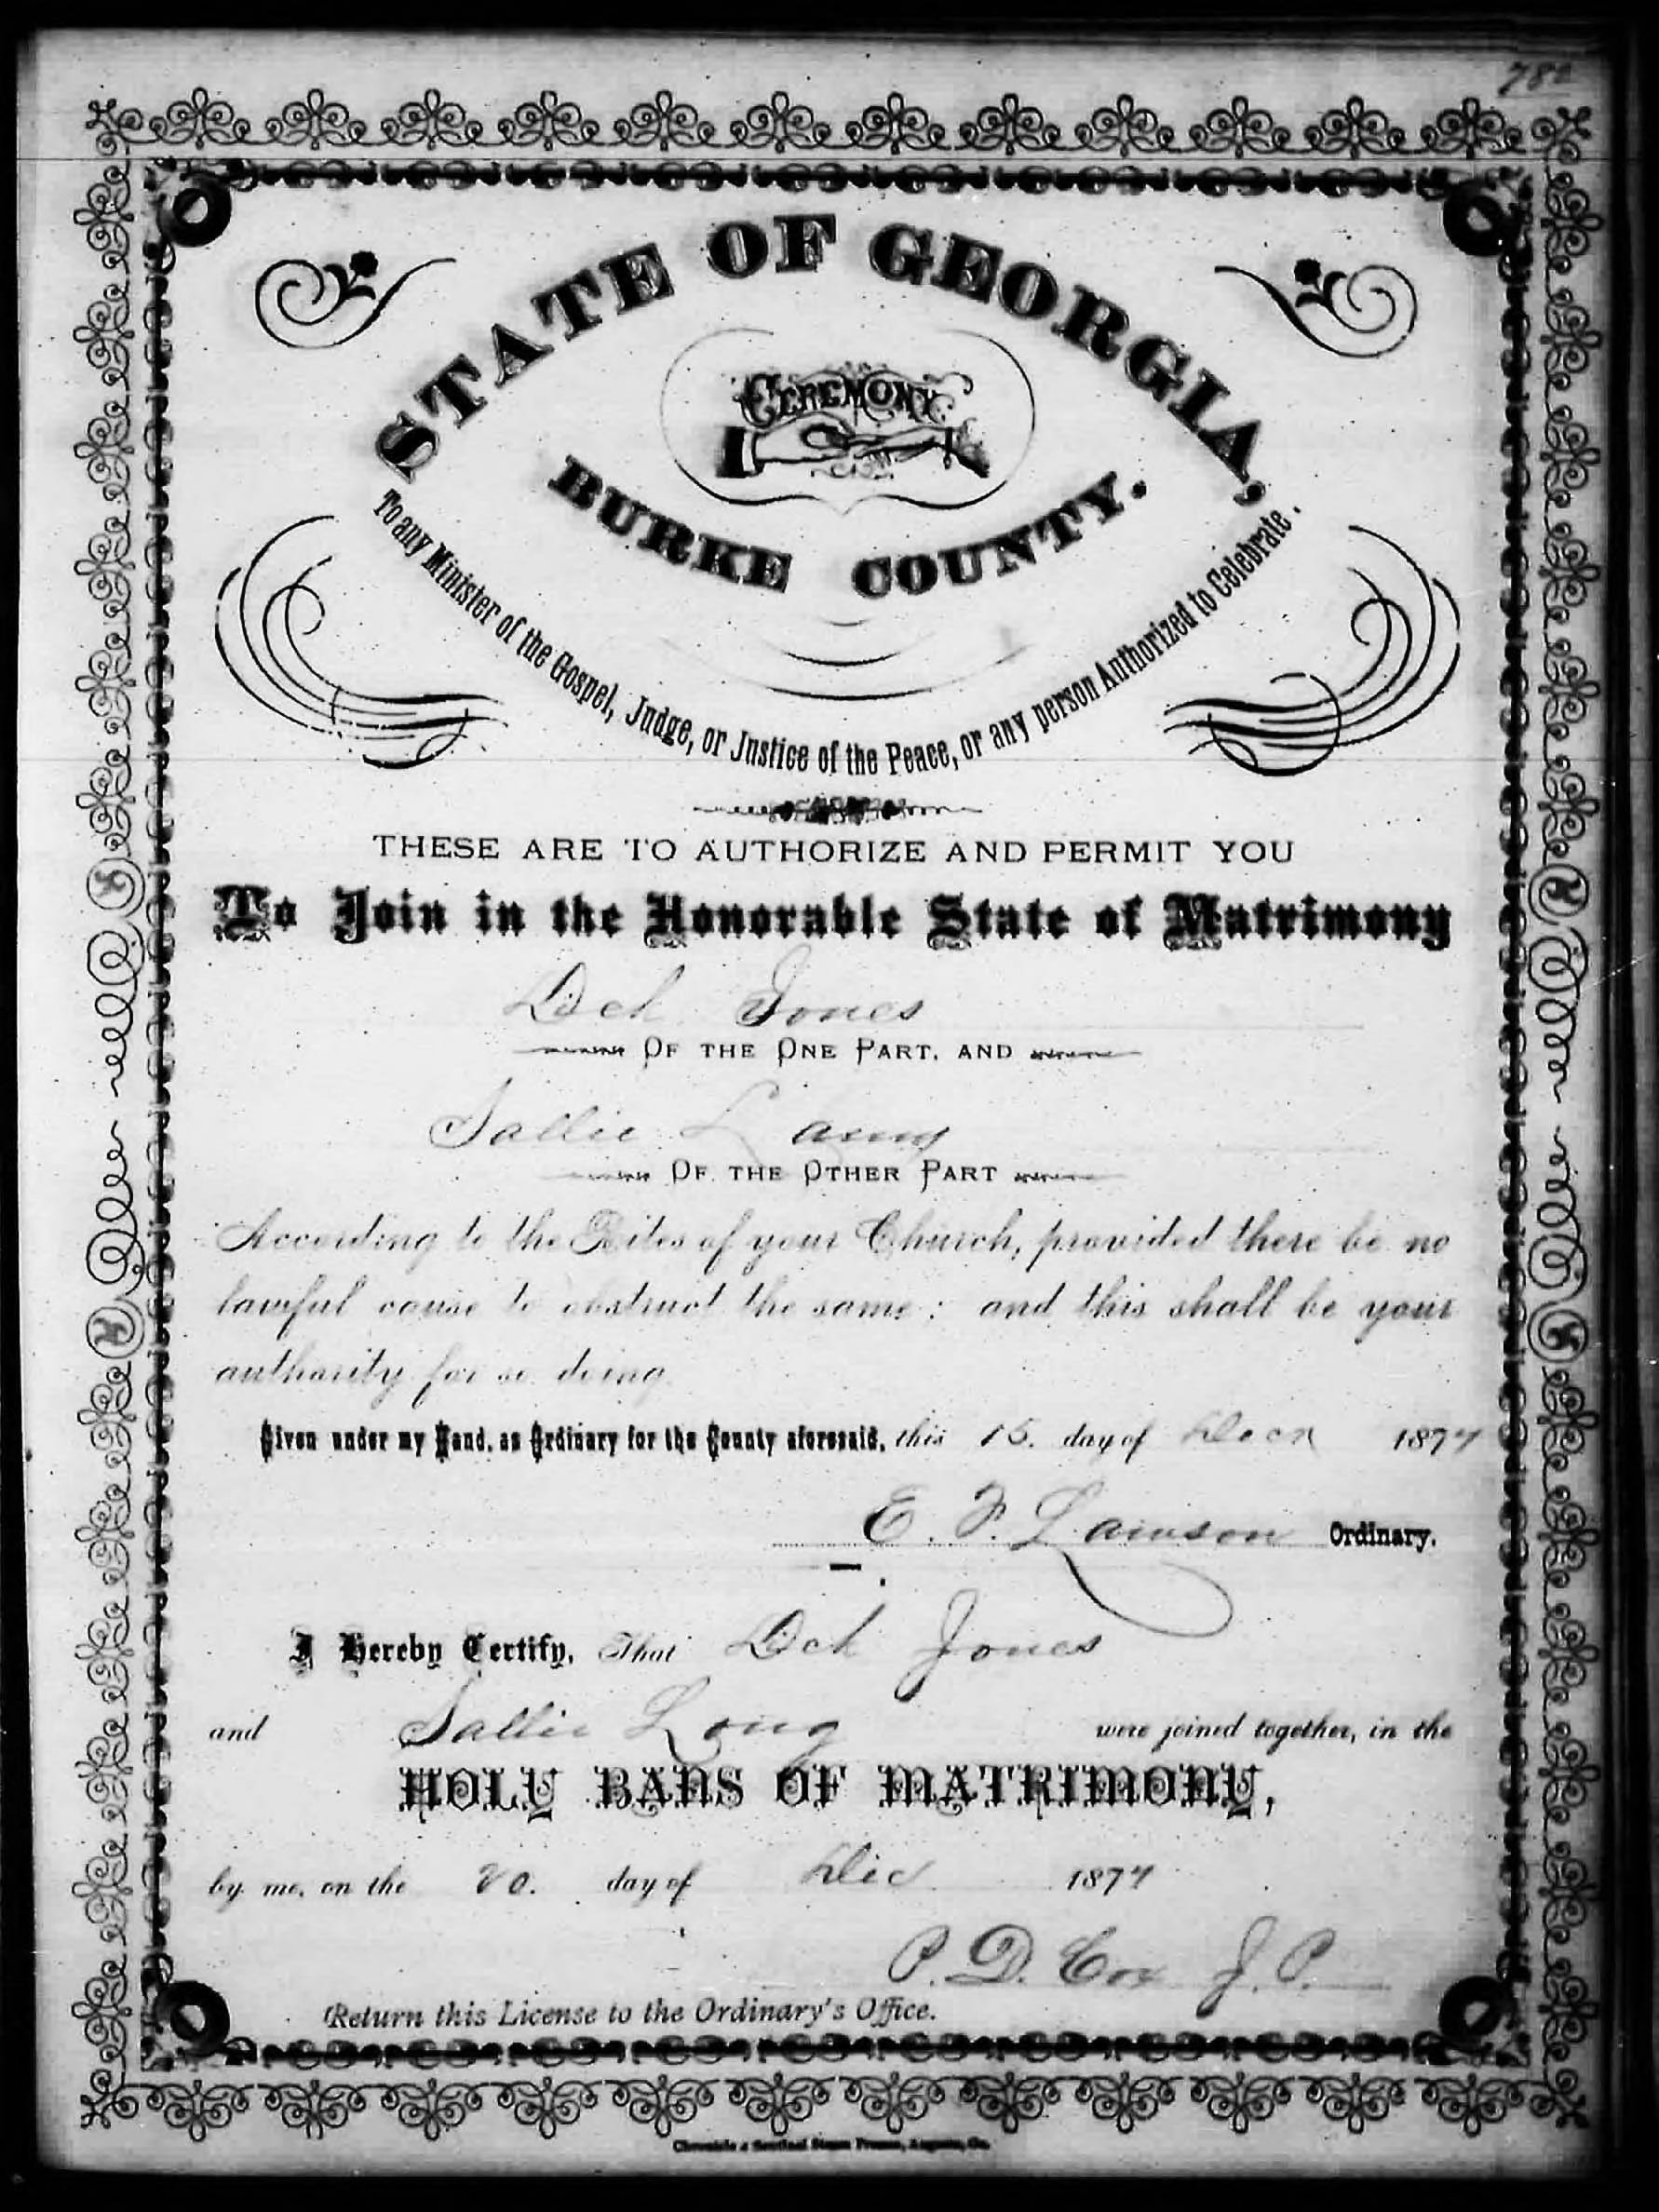 782
STATE OF GEORGIA,
CEREMONY.
BURKE COUNTY.
To any Minister of the Gospel, Judge, or Justice of the Peace, or any person Authorized to Celebrate.
THESE ARE TO AUTHORIZE AND PERMIT YOU
To Join in the Honorable State of Matrimony
Jones
OF THE ONE PART, AND
Sallie
OF THE OTHER PART
According to the Rites of your Church, provided there be no
lawful cause to obstruct the same; and this shall be your
authority for so doing
Given under my Hand, as Ordinary for the County aforesaid, this 15. day of 1877
E. F. Lawson Ordinary.
I Hereby Certify, That Jones
and Sallie Long were joined together, in the
HOLY BANS OF MATRIMONY,
by me, on the 20. day of Dec 1877
P. D. Cox J. P.
Return this License to the Ordinary's Office.
Chronicle & Sentinel Steam Presses, Augusta, Ga.